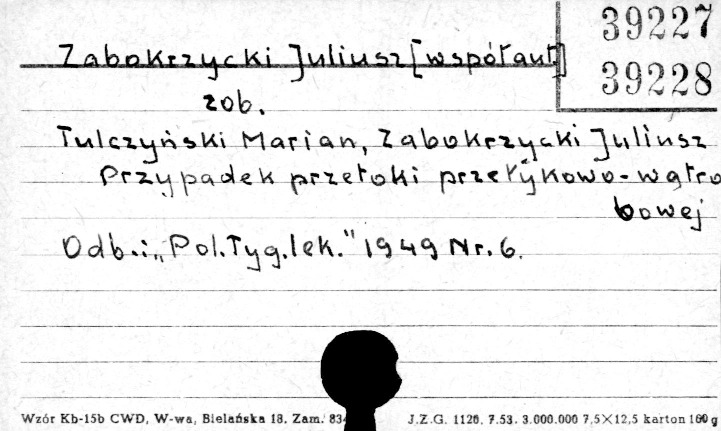 39227
Zabokrzycki Juliusz [współaut]
39228
zob.
Tulczyński Marian, Zabokrzycki Juliusz
Przypadek przetoki przełykowo-wątro
bowej
Odb.i „Pol.Tyg.lek." 1949 Nr. 6.
Wzór Kb-15b CWD, W-wa, Bielańska 18. Zam. 834
J.Z.G. 1120. 7.53. 3.000.000 7,5×12,5 karton 160 g